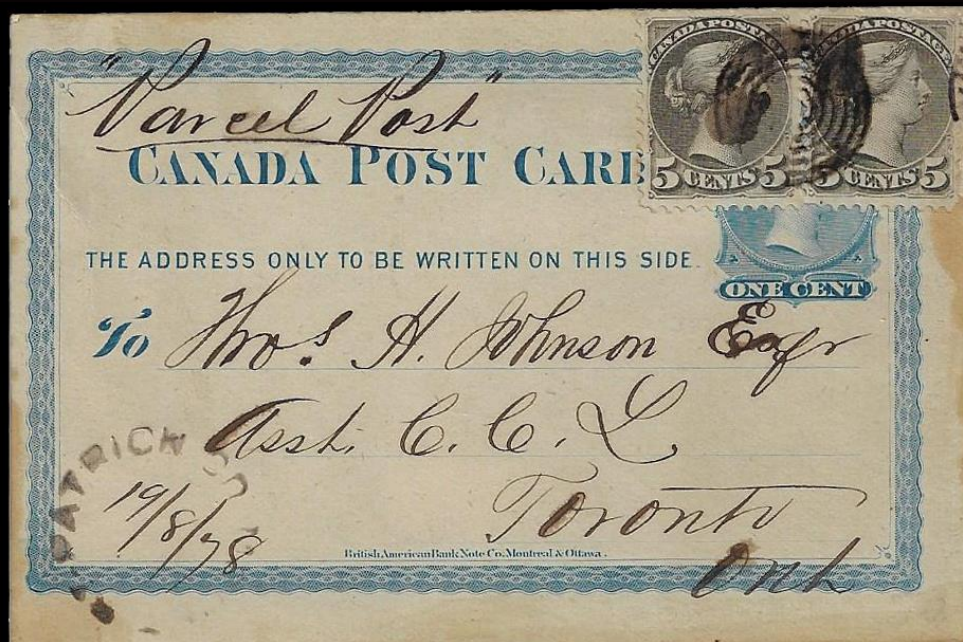 "Parcel Post"
CANADA POSTAGE CANADA POSTAGE
5 CENTS 5 5 CENTS 5
CANADA POST CAR
THE ADDRESS ONLY TO BE WRITTEN ON THIS SIDE
ONE CENT
To Thos. H. Johnson Esqr
Asst. C. C. L.
Toronto
Ont
19/8/78
British American Bank Note Co. Montreal & Ottawa.